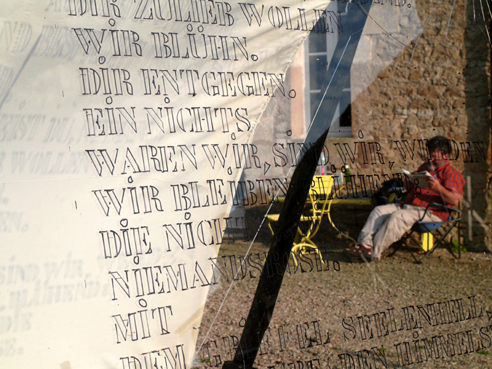 DIR ZULIEB WOLLEN
WIR BLÜHN.
DIR ENTGEGEN.
EIN NICHTS
WAREN WIR, SIND WIR, WERDEN
WIR BLEIBEN, BLÜHEND:
DIE
NIEMANDSROSE.
MIT
DEM GRIFFEL SEELENHELL,
DEN HIMMELS